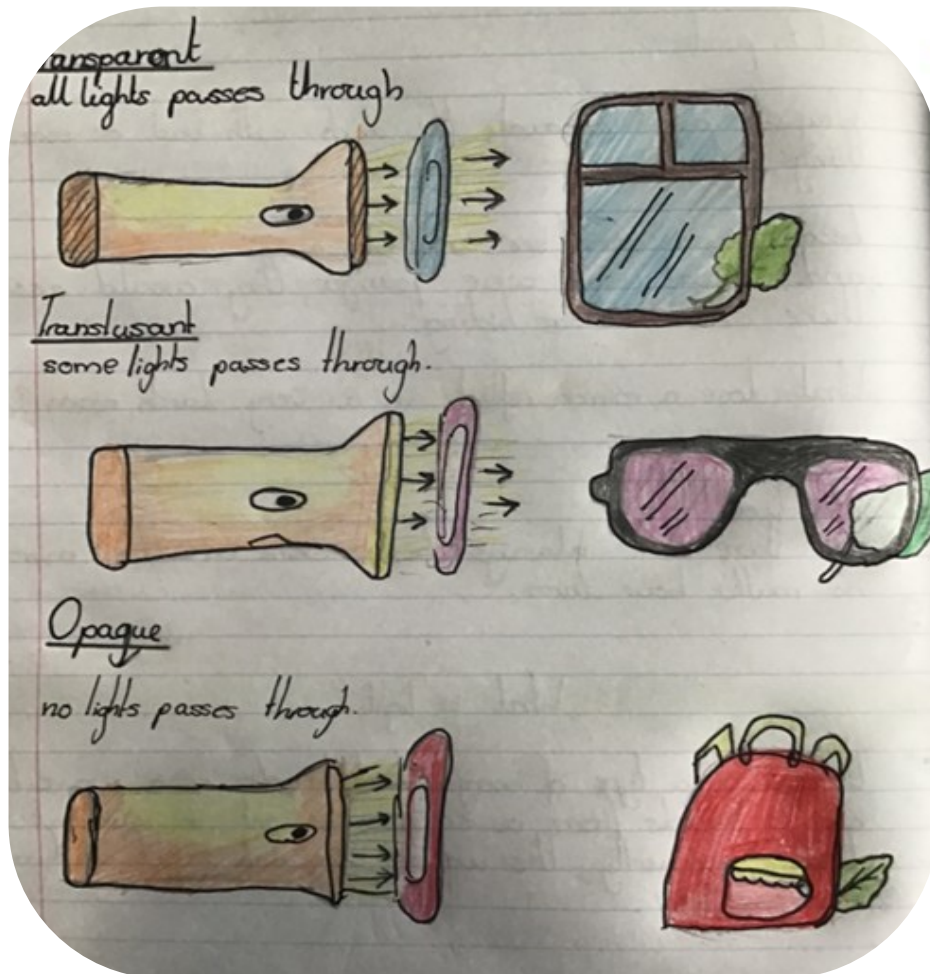 ransparent
all lights passes through
Translusant
some lights passes through.
Opaque
no lights passes through.